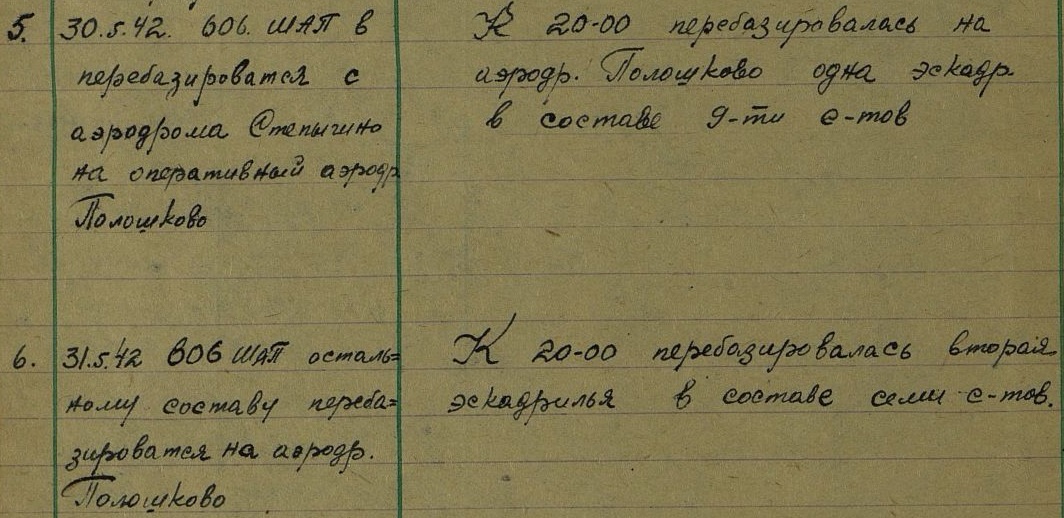 5. 30.5.42. 606. ШАП в
перебазироватся с
аэродрома Степыгино
на оперативный аэродр.
Полошково
К 20-00 перебазировалась на
аэродр. Полошково одна эскадр.
в составе 9-ти с-тов
6. 31.5.42 606 ШАП осталь=
ному составу переба=
зироватся на аэродр.
Полошково
К 20-00 перебазировалась вторая
эскадрилья в составе семи с-тов.